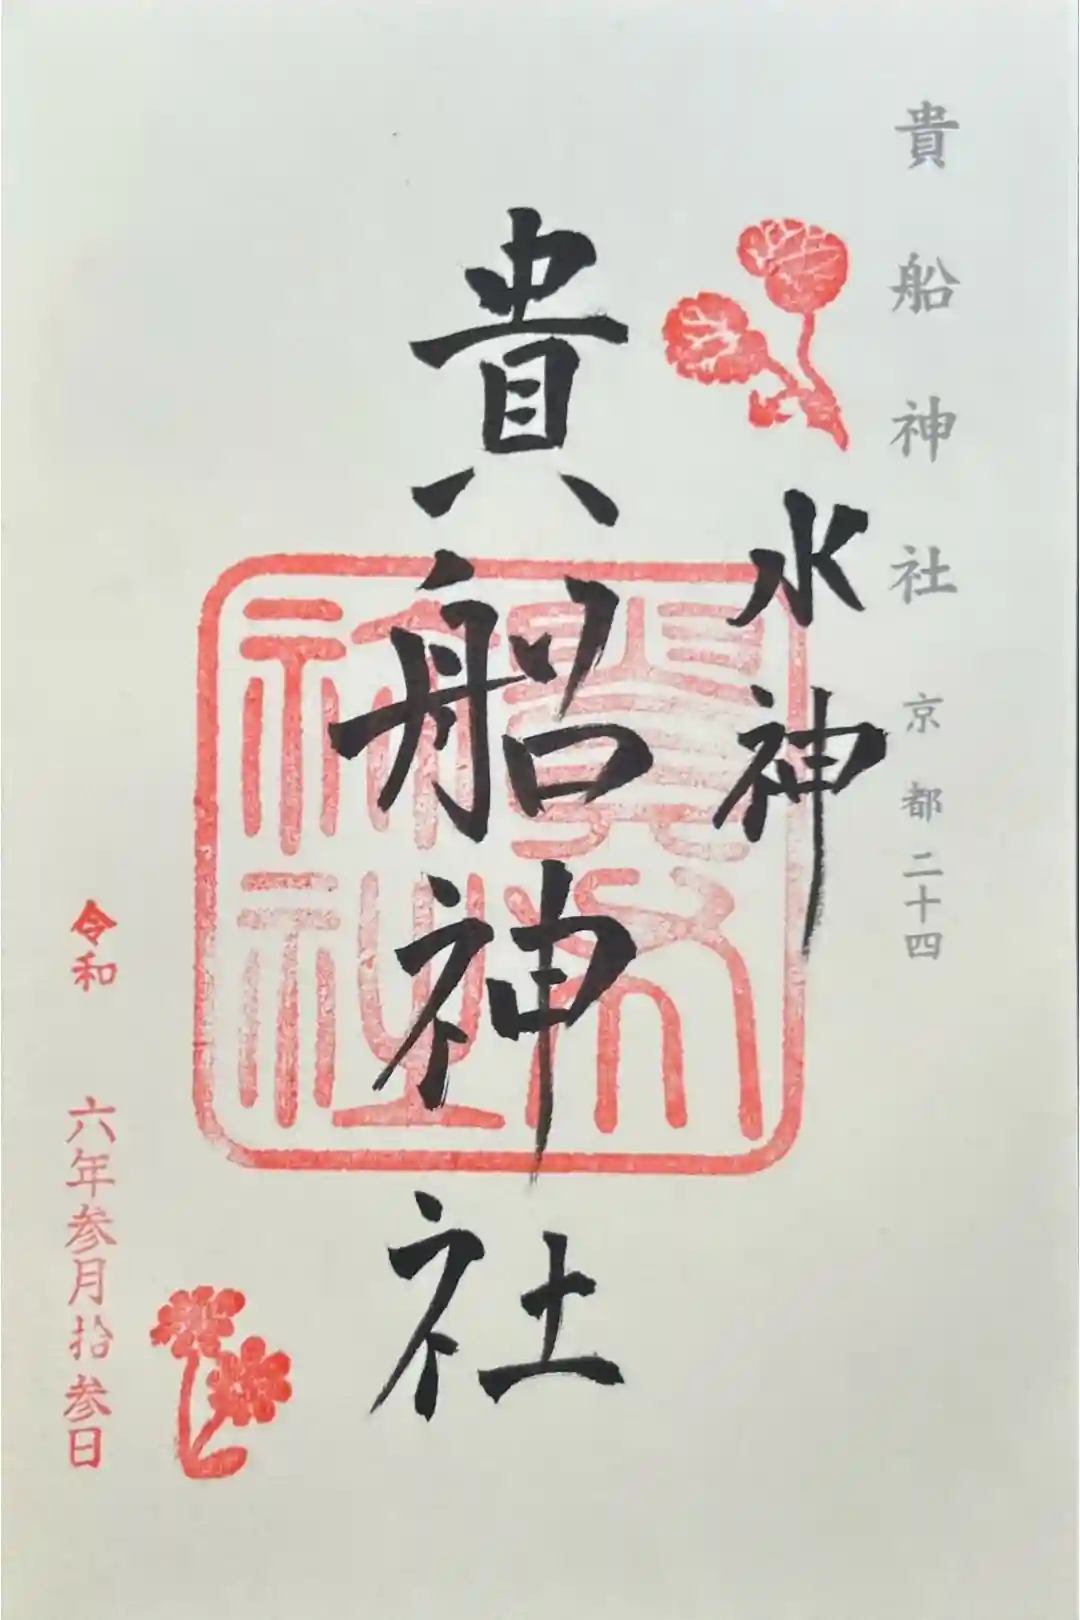 貴船神社 京都二十四
水神
貴船神社
貴船神社
令和 六年参月拾参日